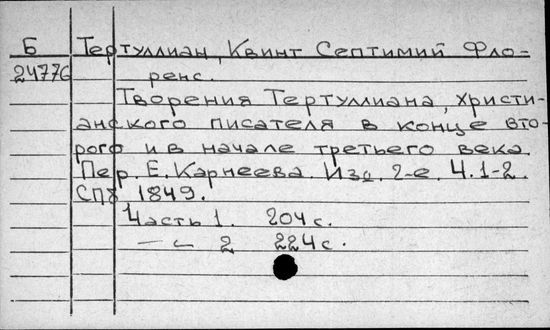 Б Тертуллиан, Квинт Септимий Фло-
24776 ренс.
Творения Тертуллиана, христи-
анского писателя в конце вто-
рого и в начале третьего века.
Пер. Е. Карнеева. Изд. 2-е. Ч. 1-2.
СПб 1849.
Часть 1. 204 с.
—"— 2 224 с.